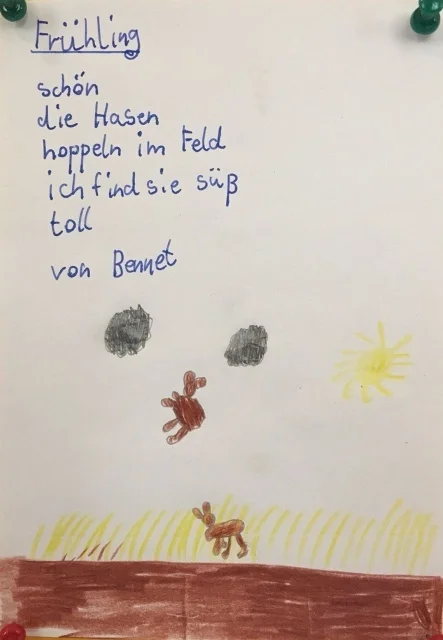 Frühling
schön
die Hasen
hoppeln im Feld
ich find sie süß
toll
von Bennet